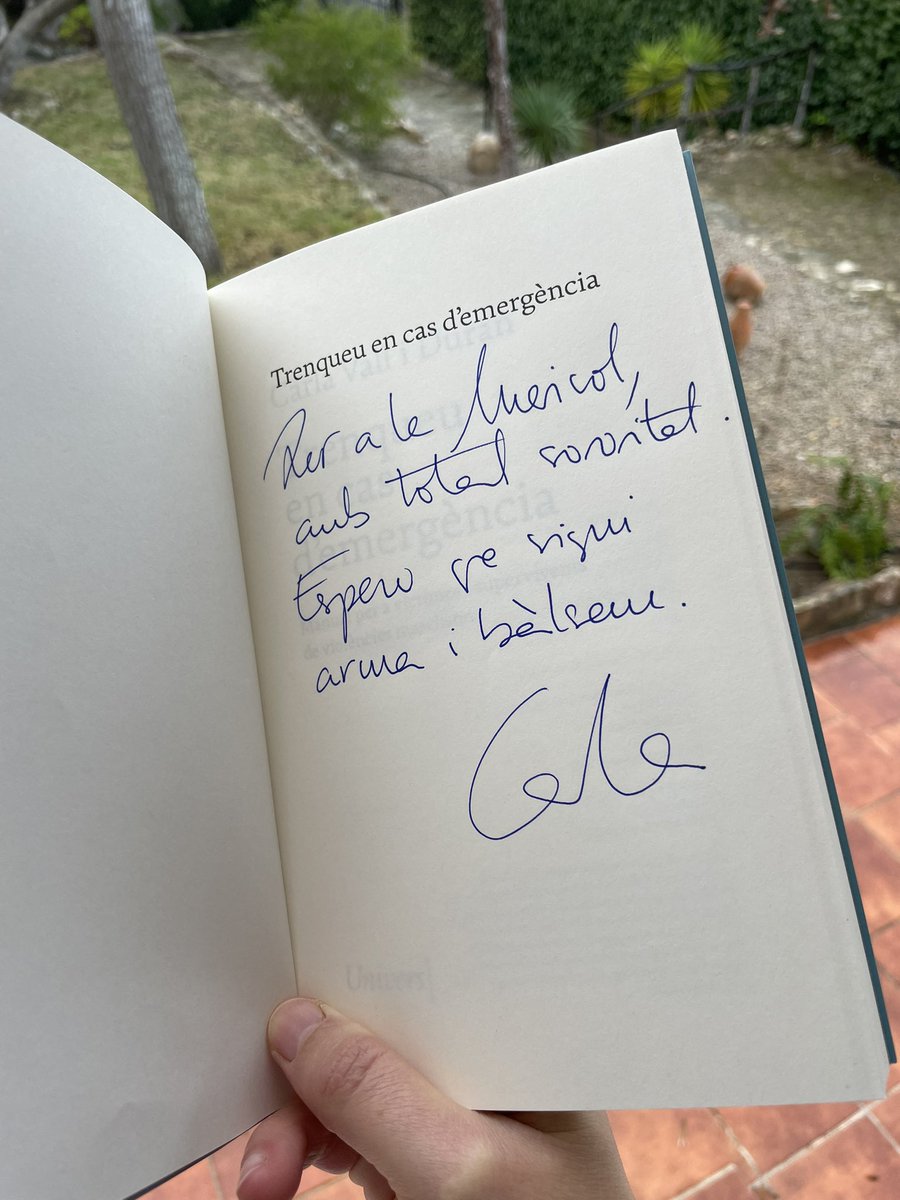 Trenqueu en cas d'emergència
Per a la Mericol,
amb total sororitat.
Espero que sigui
arma i bàlsam.
Carla
Univers